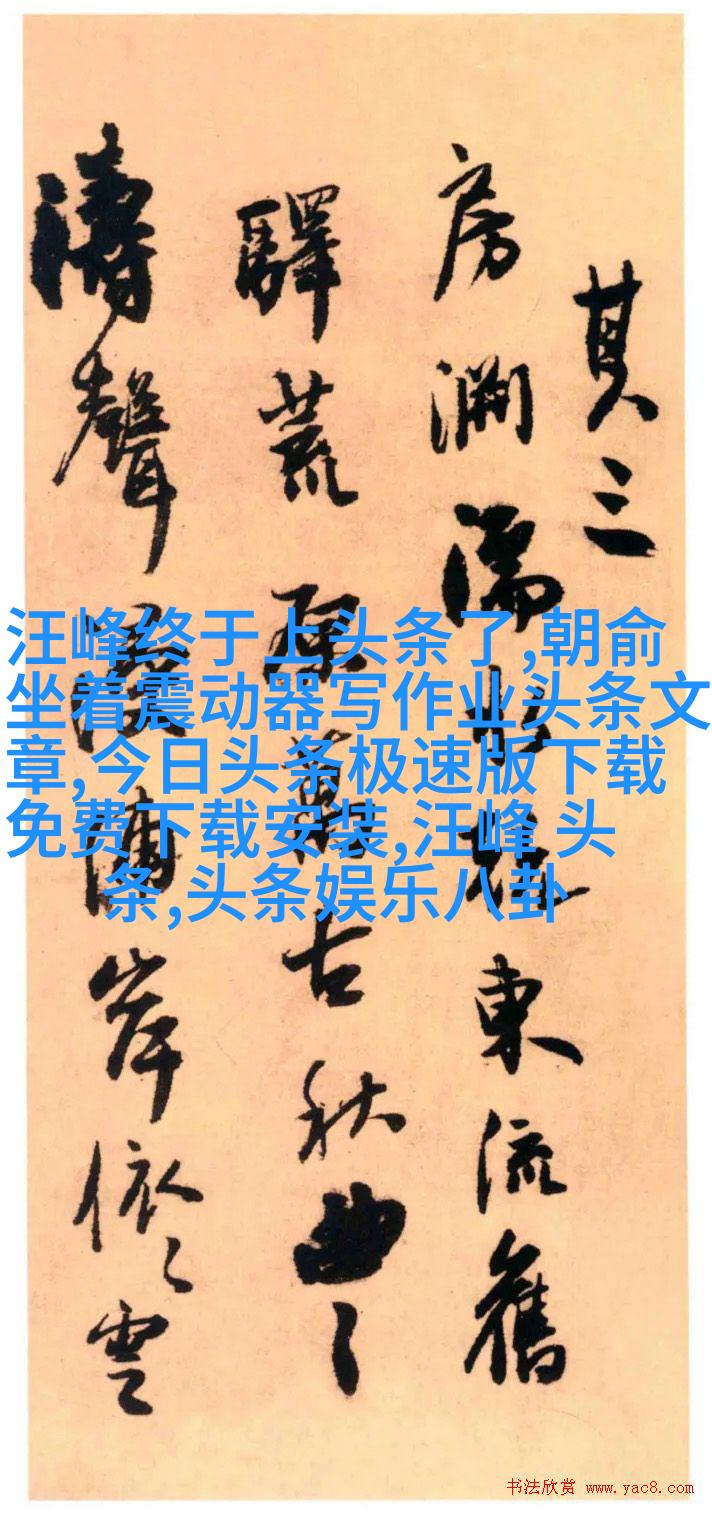 其三
房濡東流舊
驛荒原萬古秋曲々
濤聲浦岸依々雲
汪峰终于上头条了,朝俞
坐着震动器写作业头条文
章,今日头条极速版下载
免费下载安装,汪峰 头
条,头条娱乐八卦
书法欣赏 www.yac8.com